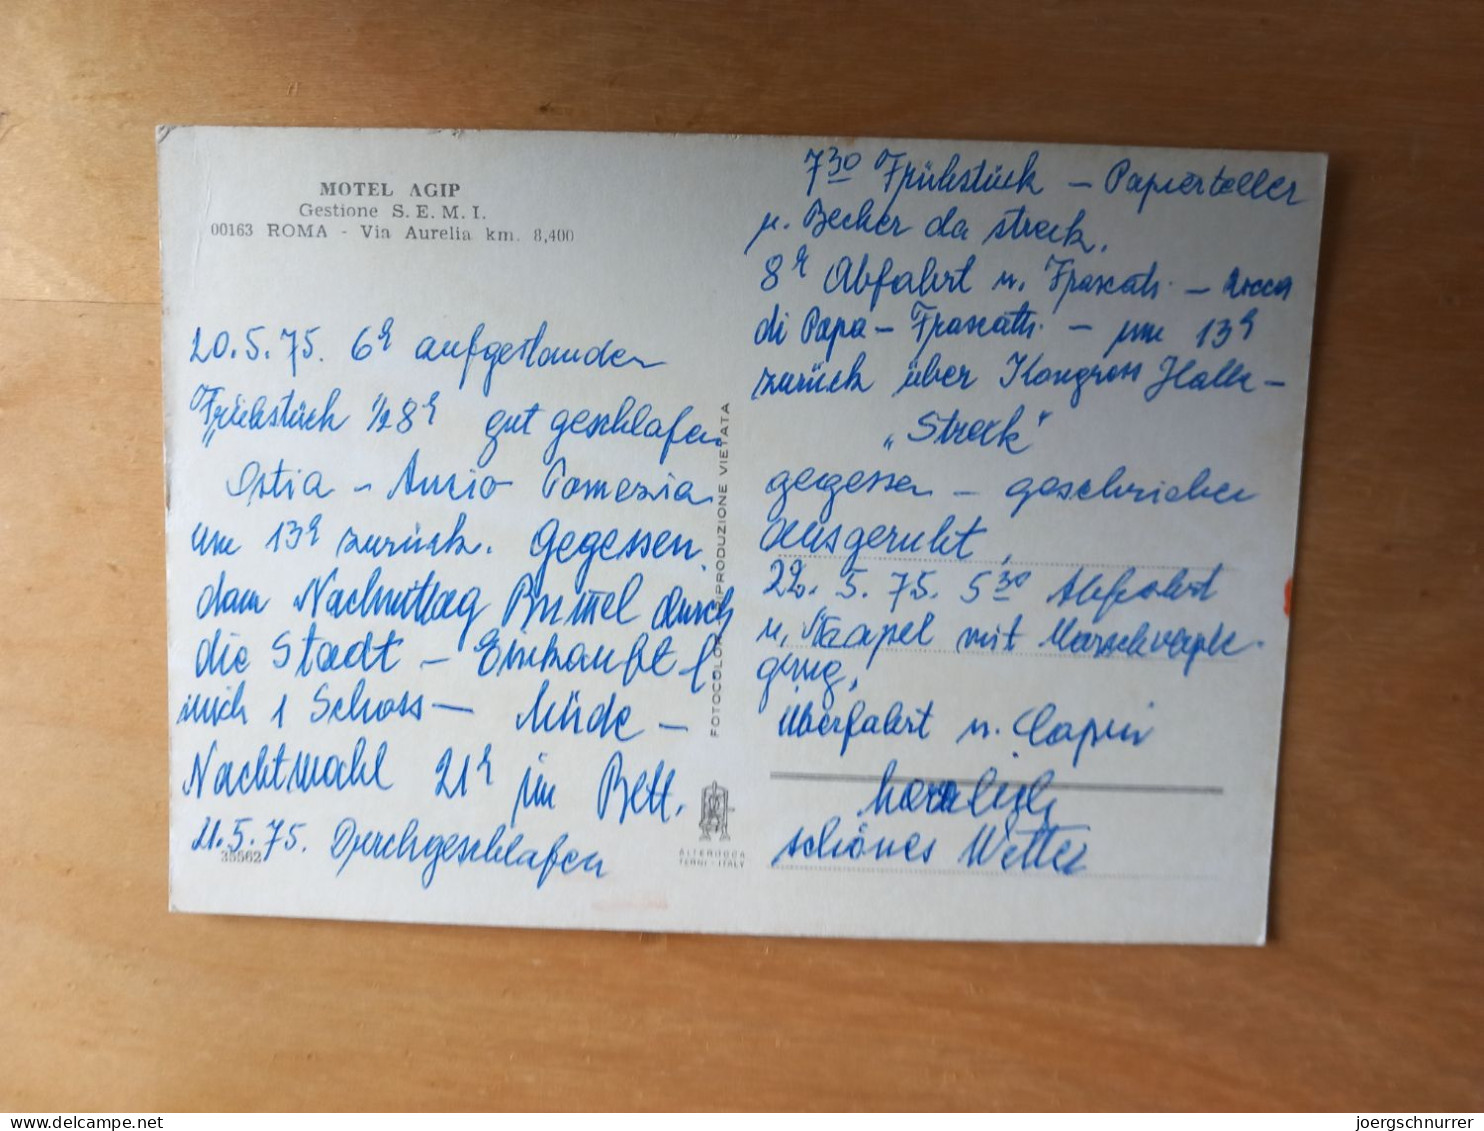 MOTEL AGIP
Gestione S. E. M. I.
00163 ROMA - Via Aurelia km. 8,400
20.5.75. 6h aufgestanden
Frühstück ½8h gut geschlafen
Ostia - Anzio Pomezia
um 13h zurück. Gegessen.
dann Nachmittag Bummel durch
die Stadt - Einkauft f
mich 1 Schoss - Müde -
Nachtmahl 21h im Bett.
21.5.75. Durchgeschlafen
35562
FOTOCOLOR RIPRODUZIONE VIETATA
ALTEROCCA
TERNI - ITALY
7 30 Frühstück - Papierteller
u. Becher da streik.
8h Abfahrt n. Frascati - Rocca
di Papa - Frascati - um 13h
zurück über Kongress Halle -
„Streik"
gegessen - geschrieben
ausgeruht,
22. 5. 75. 5 30 Abfahrt
n. Neapel mit Marschverpfle-
gung,
Überfahrt n. Capri
herrlich
schönes Wetter
joergschnurrer